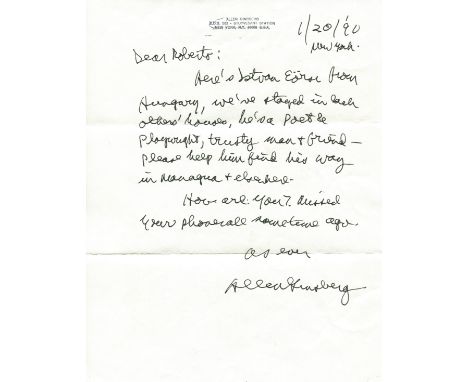 ALLEN GINSBERG
P.O.B. 582 - STUYVESANT STATION
NEW YORK, N.Y. 10009 U.S.A.
1/20/'90
New York.
Dear Roberto:
Here's Istvan Eörsi from
Hungary, we've stayed in each
others' houses, he's a Poet &
Playwright, trusty man & friend —
please help him find his way
in Managua & elsewhere.
How are you? I missed
your phonecall sometime ago.
as ever
Allen Ginsberg